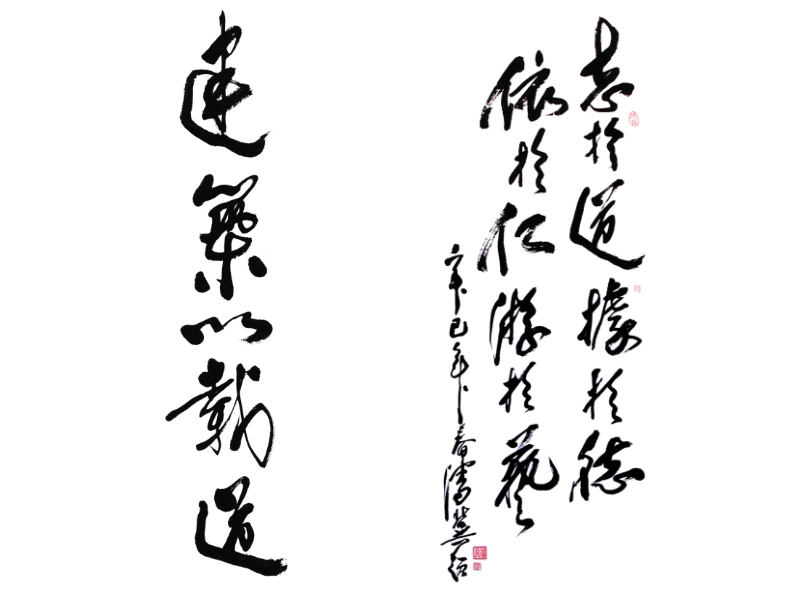 志於道據於德
依於仁游於藝
辛巳年春
建築以載道